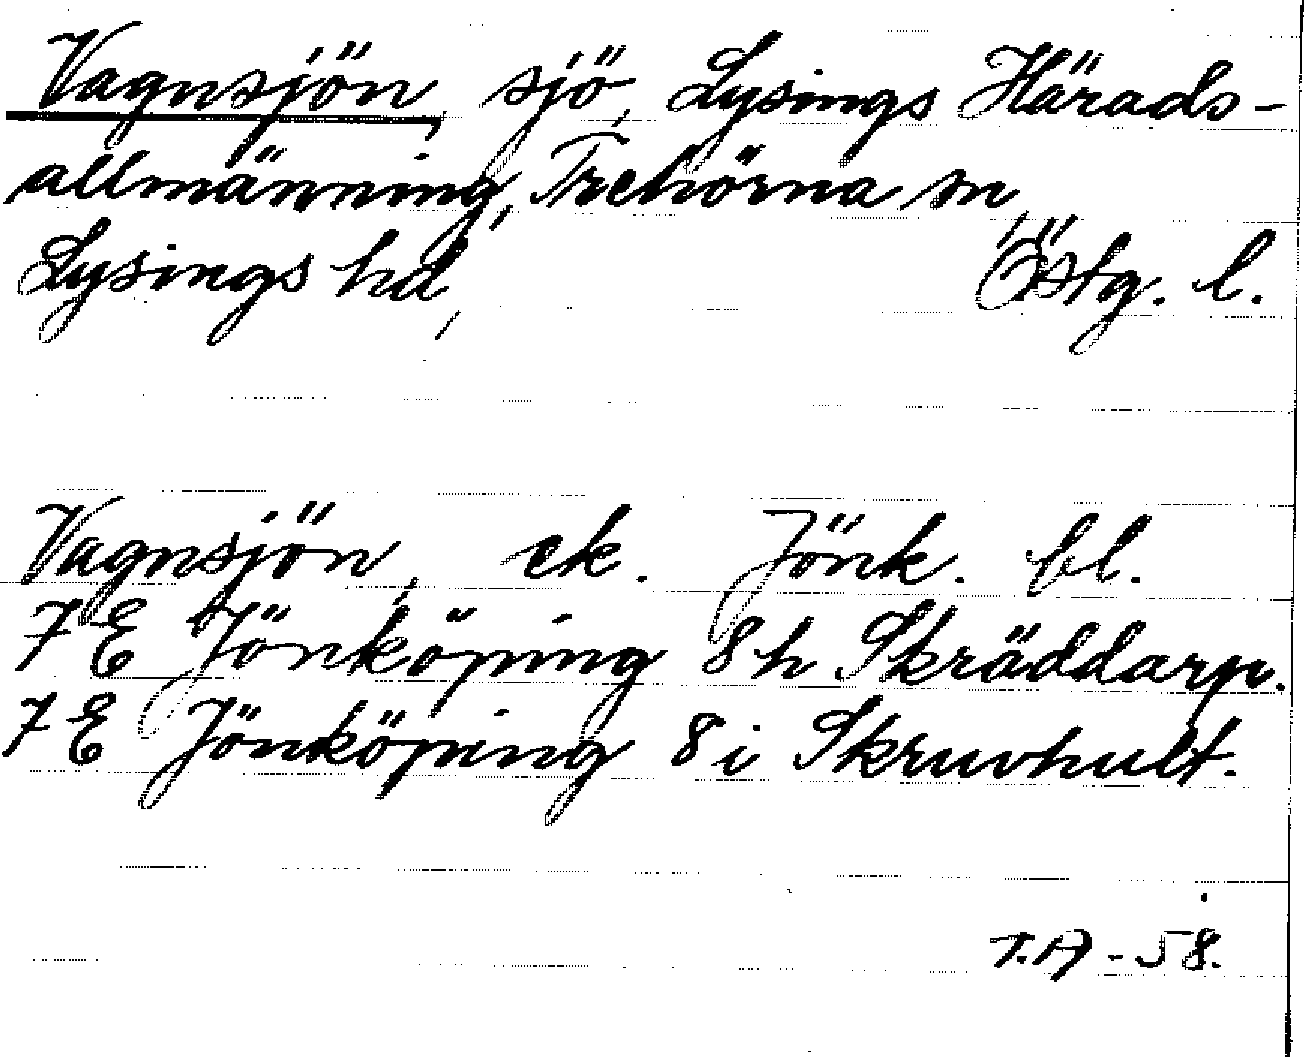 Vagnsjön, sjö, Lysings Härads-
allmänning, Trehörna sn,
Lysings hd, Östg. l.
Vagnsjön, ek. Jönk. bl.
7 E Jönköping 8 h Skräddarp.
7 E Jönköping 8 i Skruvhult.
T.A - 58.